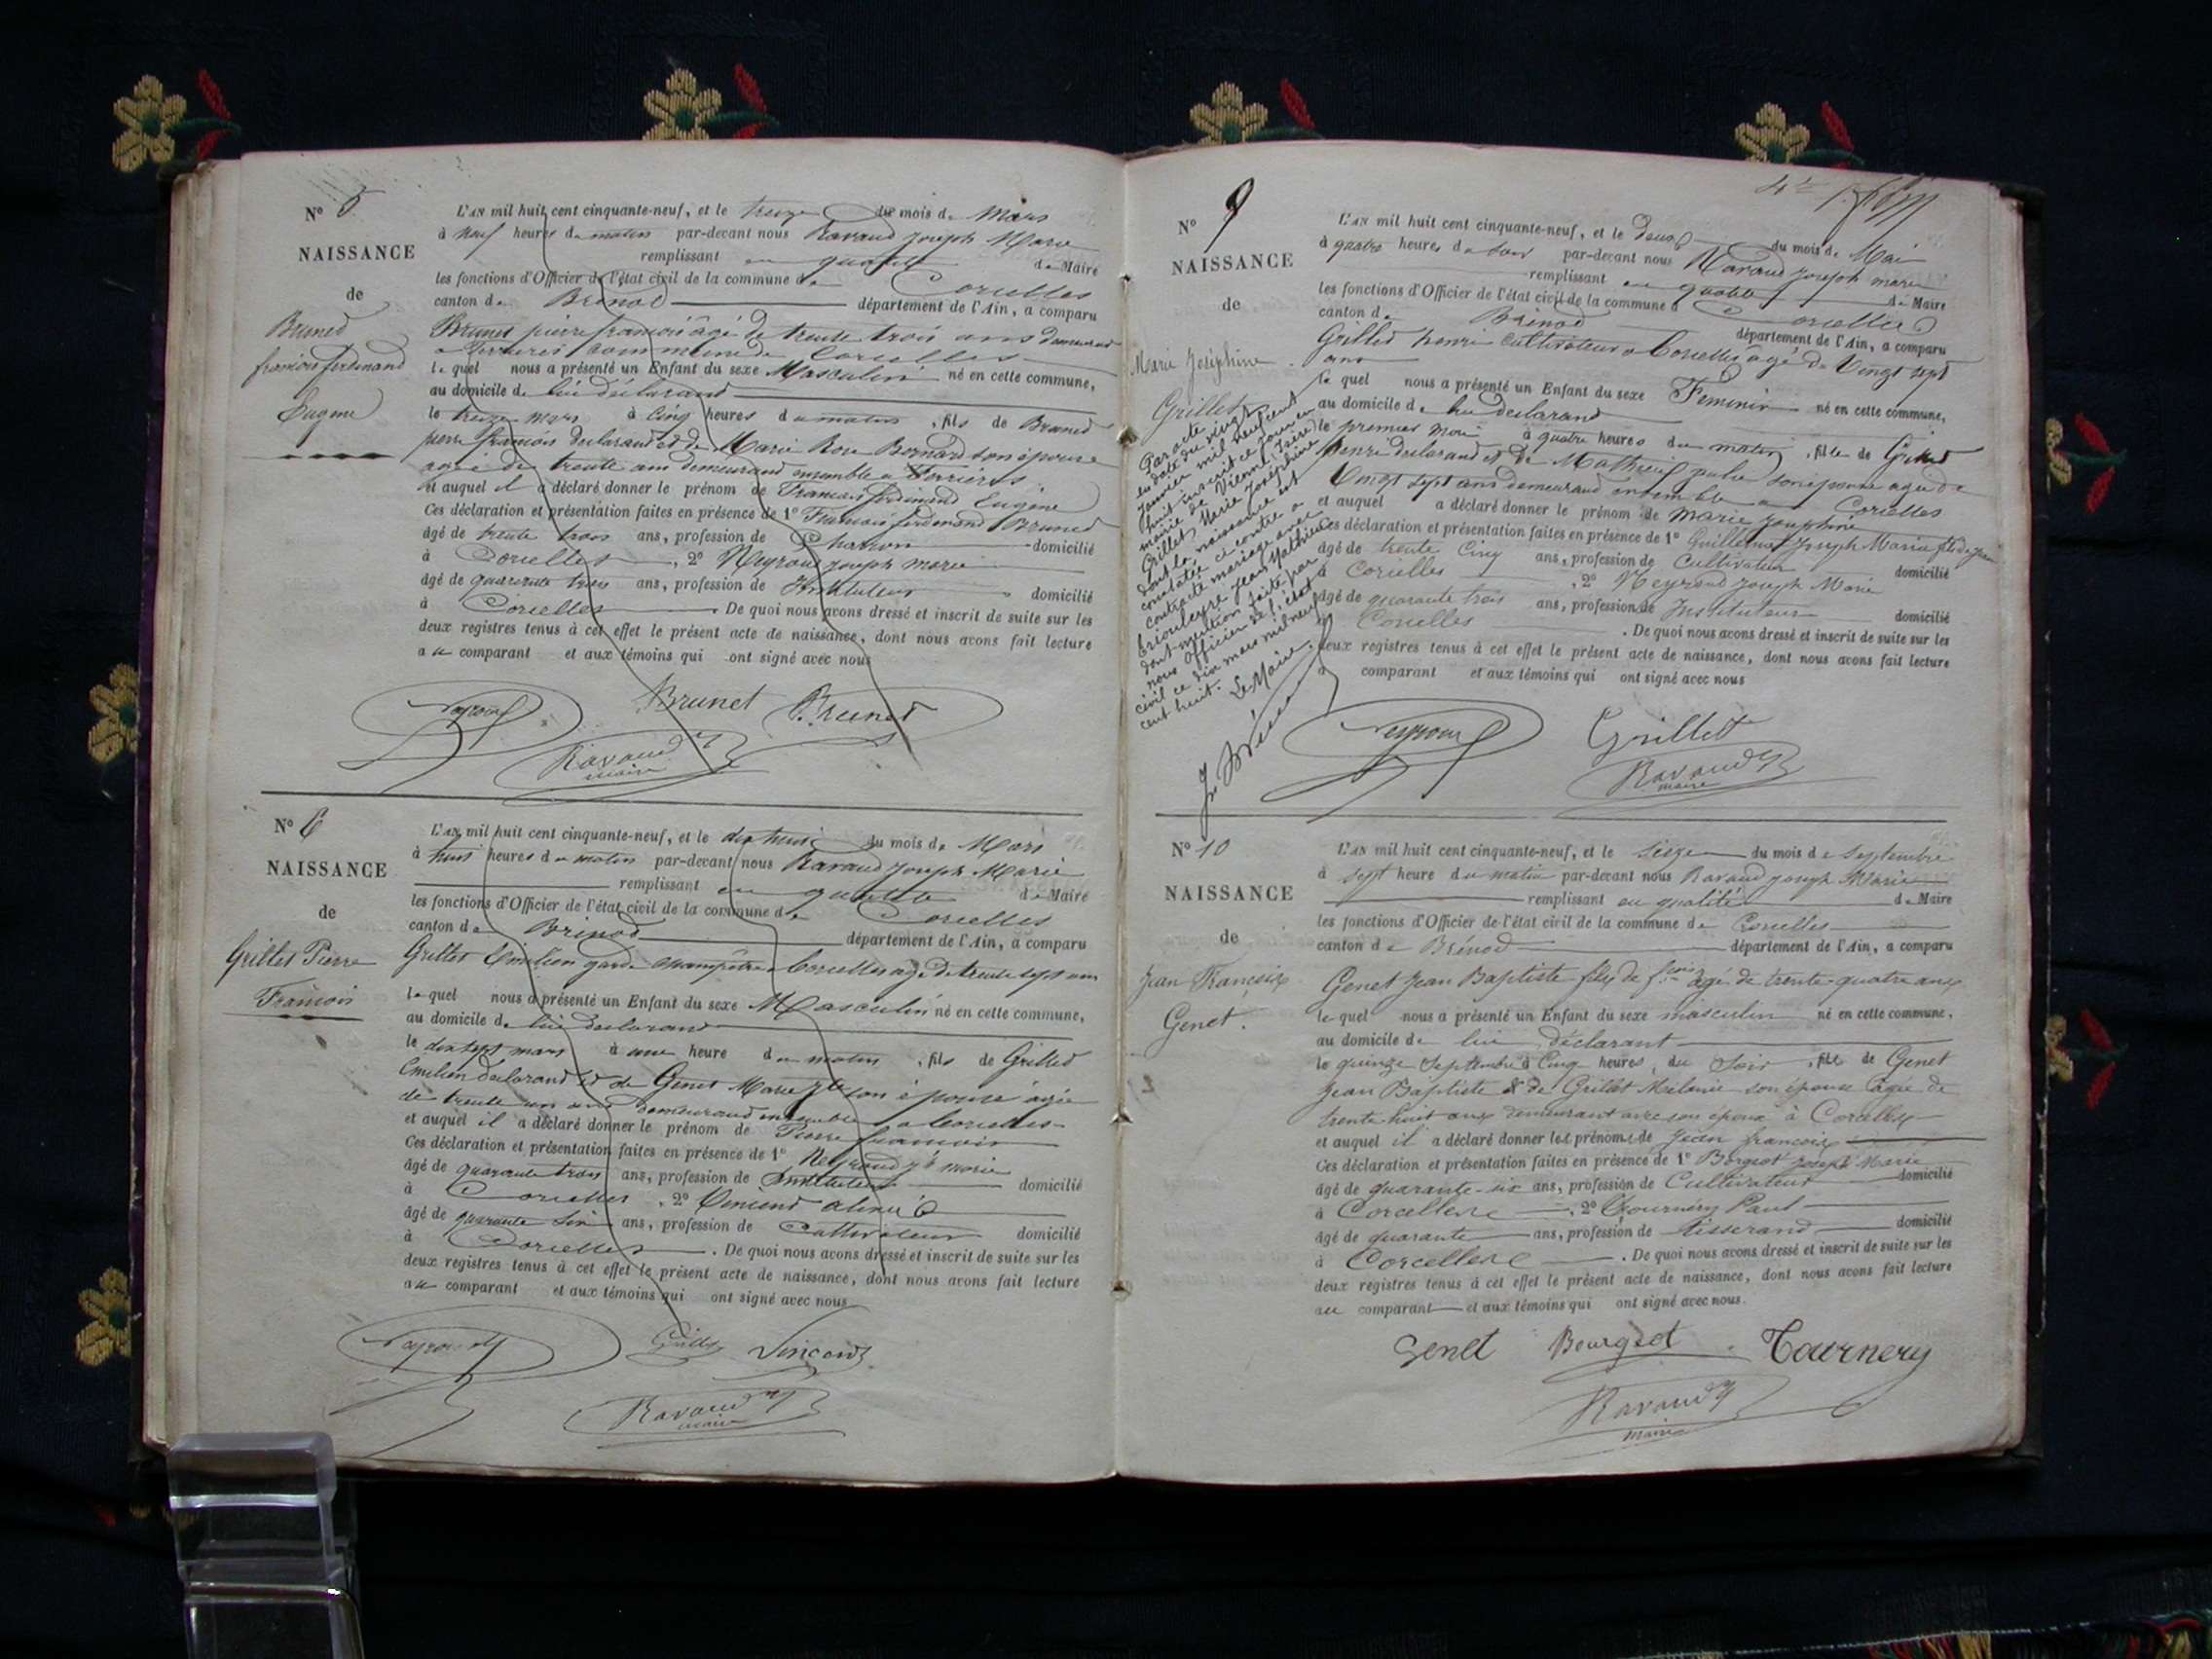 N° 5
NAISSANCE
de
Brunet
françois ferdinand
Eugene
L'AN mil huit cent cinquante-neuf, et le treize du mois de Mars
à neuf heures du matin par-devant nous Ravaud Joseph Marie
remplissant en qualité de Maire
les fonctions d'Officier de l'état civil de la commune de Corcelles
canton de Brenod département de l'Ain, a comparu
Brunet pierre francois âgé de trente trois ans demeurant
a ferrieres commune de Corcelles
lequel nous a présenté un Enfant du sexe Masculin né en cette commune,
au domicile de lui déclarand
le treize mars à cinq heures du matin, fils de Brunet
pierre francois declarand et de Marie Rose Bernard son épouse
agée de trente ans demeurand ensemble a ferrieres
et auquel il a déclaré donner le prénom de Francois ferdinand Eugène
Ces déclaration et présentation faites en présence de 1° Francois ferdinand Brunet
âgé de trente trois ans, profession de Charron domicilié
à Corcelles, 2° Neyroud joseph marie
âgé de quarante trois ans, profession de Instituteur domicilié
à Corcelles. De quoi nous avons dressé et inscrit de suite sur les
deux registres tenus à cet effet le présent acte de naissance, dont nous avons fait lecture
au comparant et aux témoins qui ont signé avec nous
Neyroud Brunet Brunet
Ravaud
maire
N° 6
NAISSANCE
de
Grillet Pierre
Francois
L'AN mil huit cent cinquante-neuf, et le dix huit du mois de Mars
à huit heures du matin par-devant nous Ravaud Joseph Marie
remplissant en qualité de Maire
les fonctions d'Officier de l'état civil de la commune de Corcelles
canton de Brenod département de l'Ain, a comparu
Grillet Emilien garde champêtre a Corcelles age de trente sept ans
lequel nous a présenté un Enfant du sexe Masculin né en cette commune,
au domicile de lui declarand
le dix sept mars à une heure du matin, fils de Grillet
Emilien declarand et de Genet Marie son épouse agée
de trente un ans demeurand ensemble a Corcelles
et auquel il a déclaré donner le prénom de Pierre francois
Ces déclaration et présentation faites en présence de 1° Neyroud Jh marie
âgé de quarante trois ans, profession de Instituteur domicilié
à Corcelles, 2° Vincend
âgé de quarante six ans, profession de Cultivateur domicilié
à Corcelles. De quoi nous avons dressé et inscrit de suite sur les
deux registres tenus à cet effet le présent acte de naissance, dont nous avons fait lecture
au comparant et aux témoins qui ont signé avec nous
Neyroud Grillet Vincend
Ravaud
maire
N° 9
NAISSANCE
de
Marie Joséphine
Grillet
Par acte
en date du vingt
janvier mil neuf cent
huit inscrit ce jour en
mairie de Vienne (Isère)
Grillet Marie Joséphine
dont la naissance est
constatée ci contre a
contracté mariage avec
Jean Mathieu
dont mention faite par
nous officier de l'état
civil ce dix mars mil neuf
cent huit. Le Maire.
L'AN mil huit cent cinquante-neuf, et le deux du mois de Mai
à quatre heures du soir par-devant nous Ravaud Joseph marie
remplissant en qualité de Maire
les fonctions d'Officier de l'état civil de la commune de Corcelles
canton de Brénod département de l'Ain, a comparu
Grillet henri cultivateur a Corcelles âgé de Vingt sept
ans
lequel nous a présenté un Enfant du sexe Feminin né en cette commune,
au domicile de lui declarand
le premier mai à quatre heures du matin, fille de Grillet
henri declarand et de Mathieu son épouse agée de
Vingt sept ans demeurand ensemble a Corcelles
et auquel a déclaré donner le prénom de marie josephine
Ces déclaration et présentation faites en présence de 1° Guillermet Joseph Marie
âgé de trente cinq ans, profession de Cultivateur domicilié
à Corcelles, 2° Neyroud Joseph Marie
âgé de quarante trois ans, profession de Instituteur domicilié
à Corcelles. De quoi nous avons dressé et inscrit de suite sur les
deux registres tenus à cet effet le présent acte de naissance, dont nous avons fait lecture
a comparant et aux témoins qui ont signé avec nous
Neyroud Grillet
Ravaud
maire
N° 10
NAISSANCE
de
Jean François
Genet.
L'AN mil huit cent cinquante-neuf, et le seize du mois de Septembre
à sept heure du matin par-devant nous Ravaud Joseph Marie
remplissant en qualité de Maire
les fonctions d'Officier de l'état civil de la commune de Corcelles
canton de Brénod département de l'Ain, a comparu
Genet Jean Baptiste fils de fçois agé de trente-quatre ans
lequel nous a présenté un Enfant du sexe masculin né en cette commune,
au domicile de lui déclarant
le quinze Septembre à Cinq heures, du Soir, fils de Genet
Jean Baptiste & de Grillet Melanie son épouse agée de
trente huit ans demeurant avec son époux à Corcelles
et auquel il a déclaré donner les prénoms de Jean françois
Ces déclaration et présentation faites en présence de 1° Borgeot Joseph Marie
âgé de quarante-six ans, profession de Cultivateur domicilié
à Corcelles, 2° Tournery Paul
âgé de quarante ans, profession de tisserand domicilié
à Corcelles. De quoi nous avons dressé et inscrit de suite sur les
deux registres tenus à cet effet le présent acte de naissance, dont nous avons fait lecture
au comparant et aux témoins qui ont signé avec nous.
Genet Bourgeot Tournery
Ravaud
maire